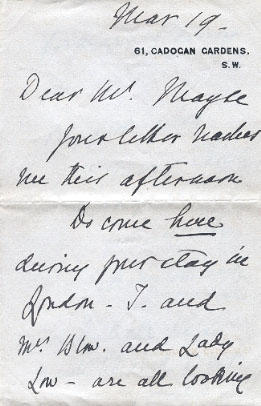 Mar 19.
61, CADOGAN GARDENS,
S.W.
Dear Mr. Maybe
Your letter reaches
me this afternoon
Do come here
during your stay in
London - I. and
Mrs Blow. and Lady
Low - are all looking